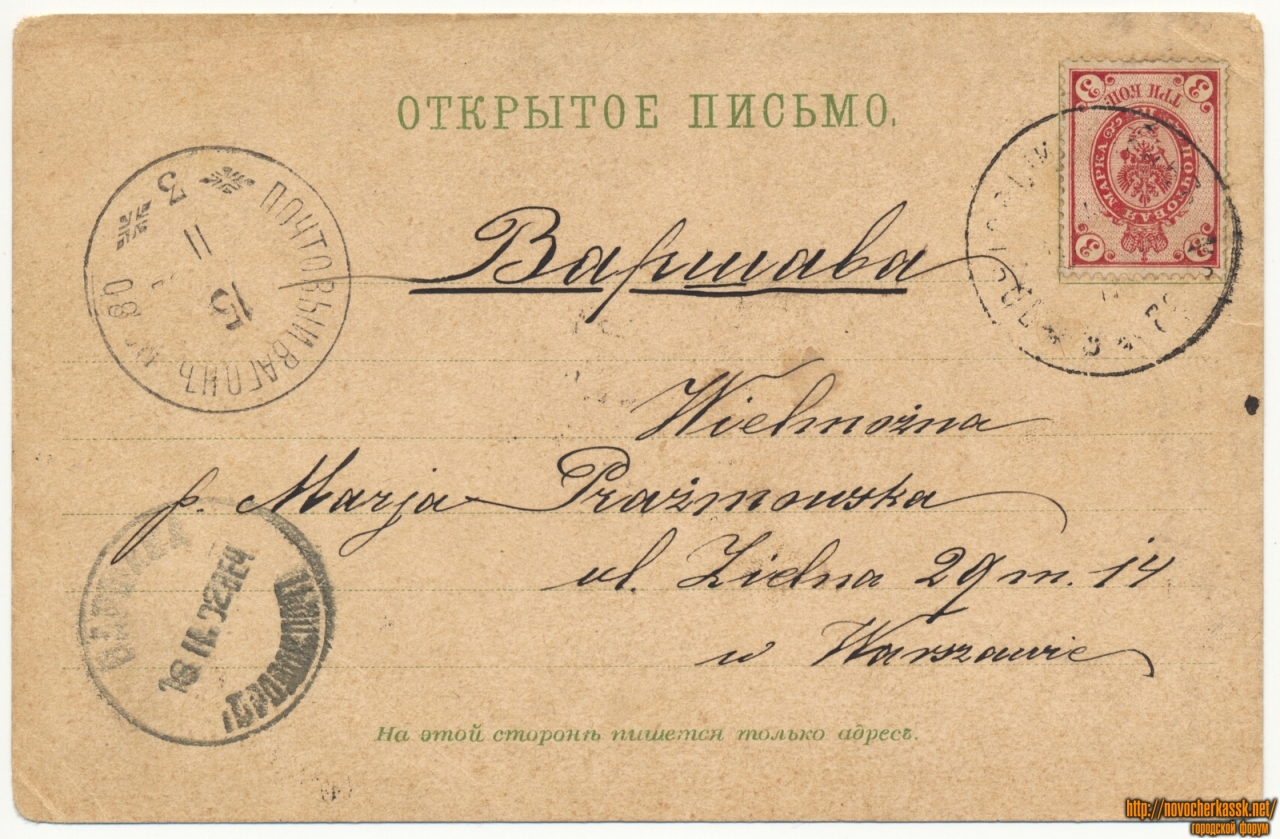 ОТКРЫТОЕ ПИСЬМО.
ТРИ КОП.
ПОЧТОВАЯ МАРКА
3
3
3
3
ПОЧТОВЫЙ ВАГОНЪ
3
11
15
80
Варшава
Wielmożna
p. Marja Prażmowska
ul. Zielna 29 m. 14
w Warszawie
ВАРШАВА
На этой сторонѣ пишется только адресъ.
http://novocherkassk.net/
городской форум